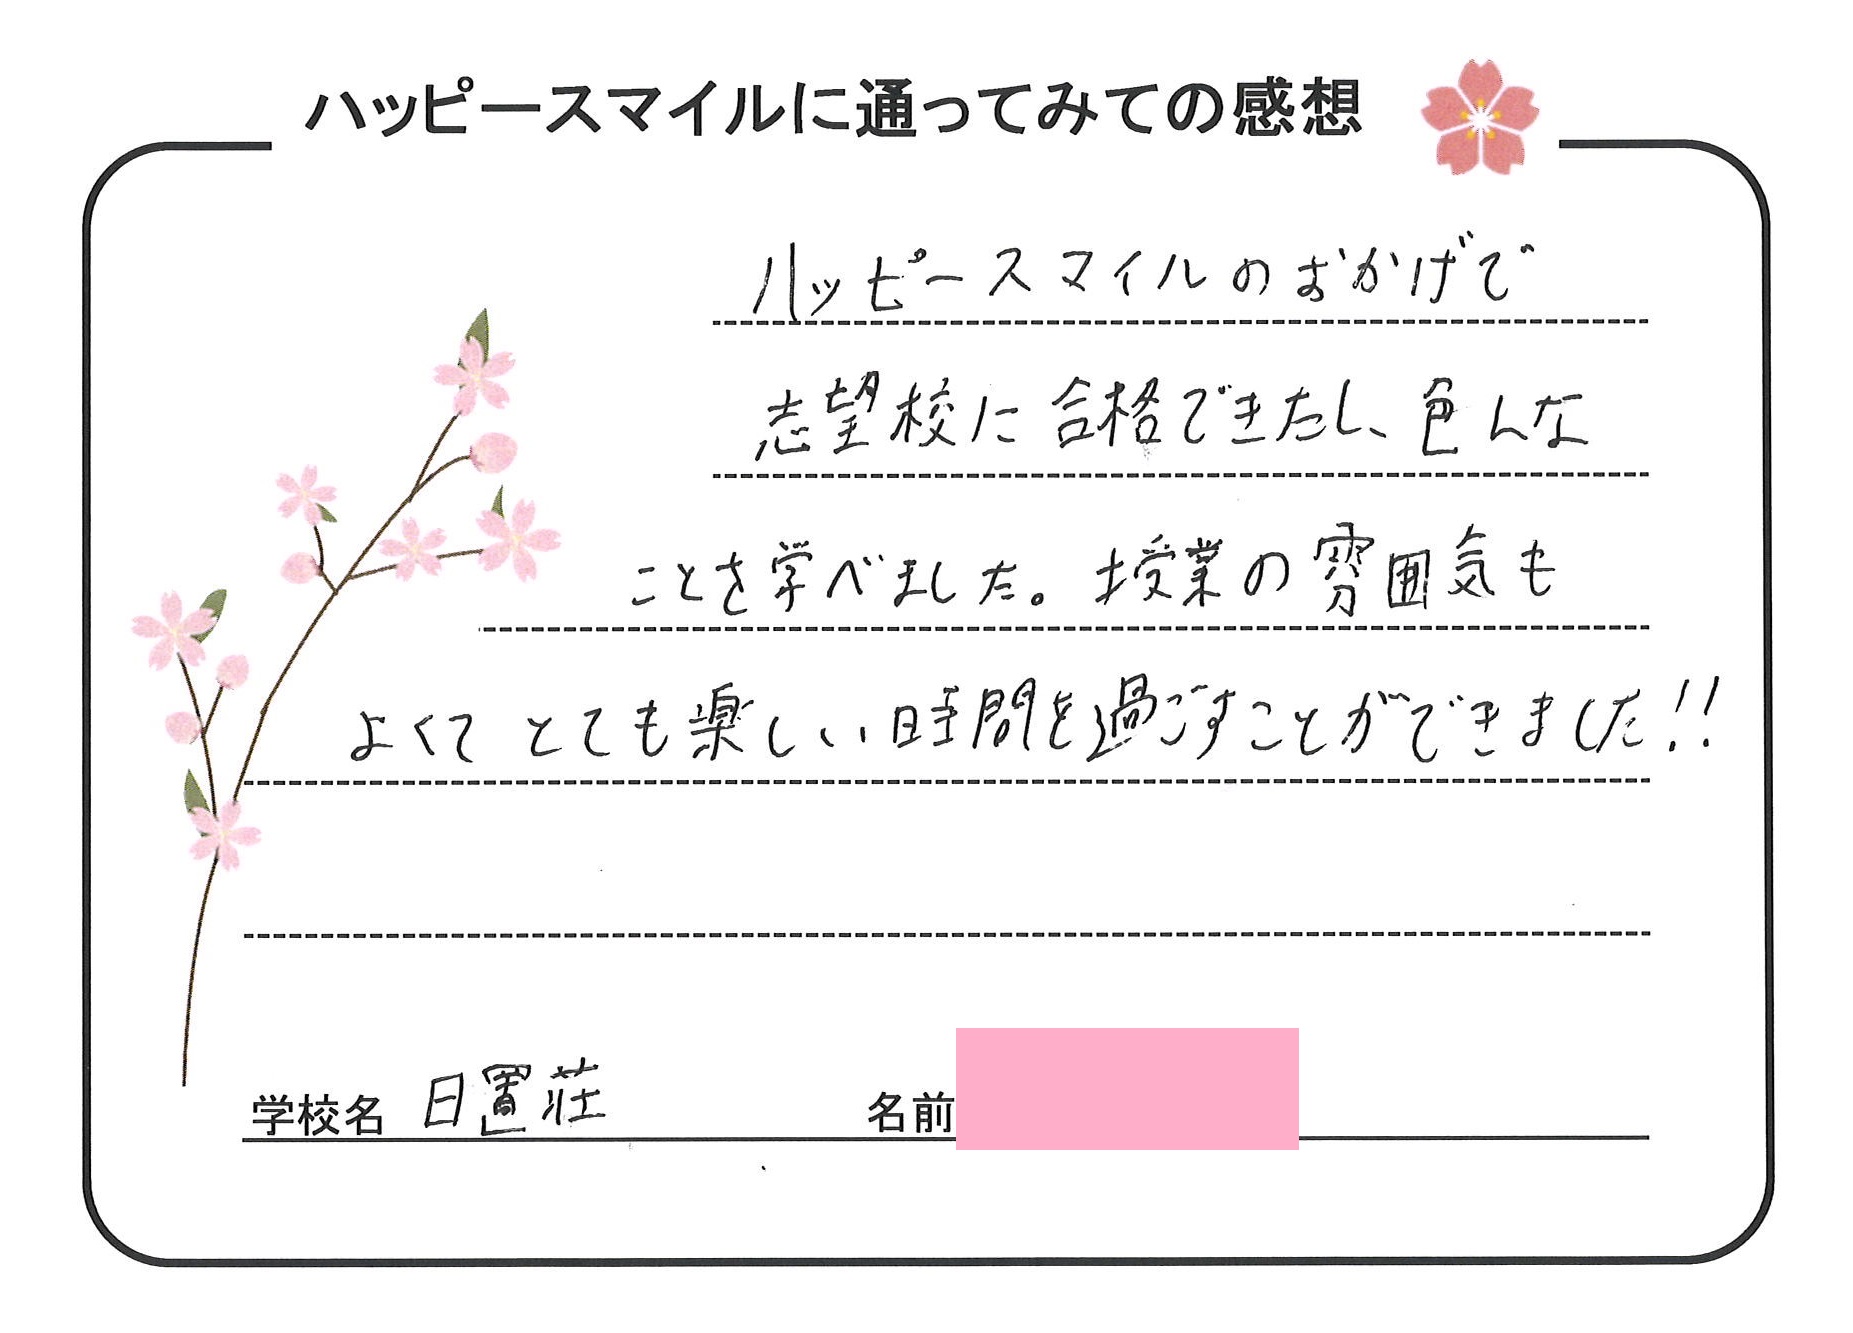 ハッピースマイルに通ってみての感想
ハッピースマイルのおかげで
志望校に合格できたし、色んな
ことを学べました。授業の雰囲気も
よくてとても楽しい時間を過ごすことができました!!
学校名 日置荘 名前